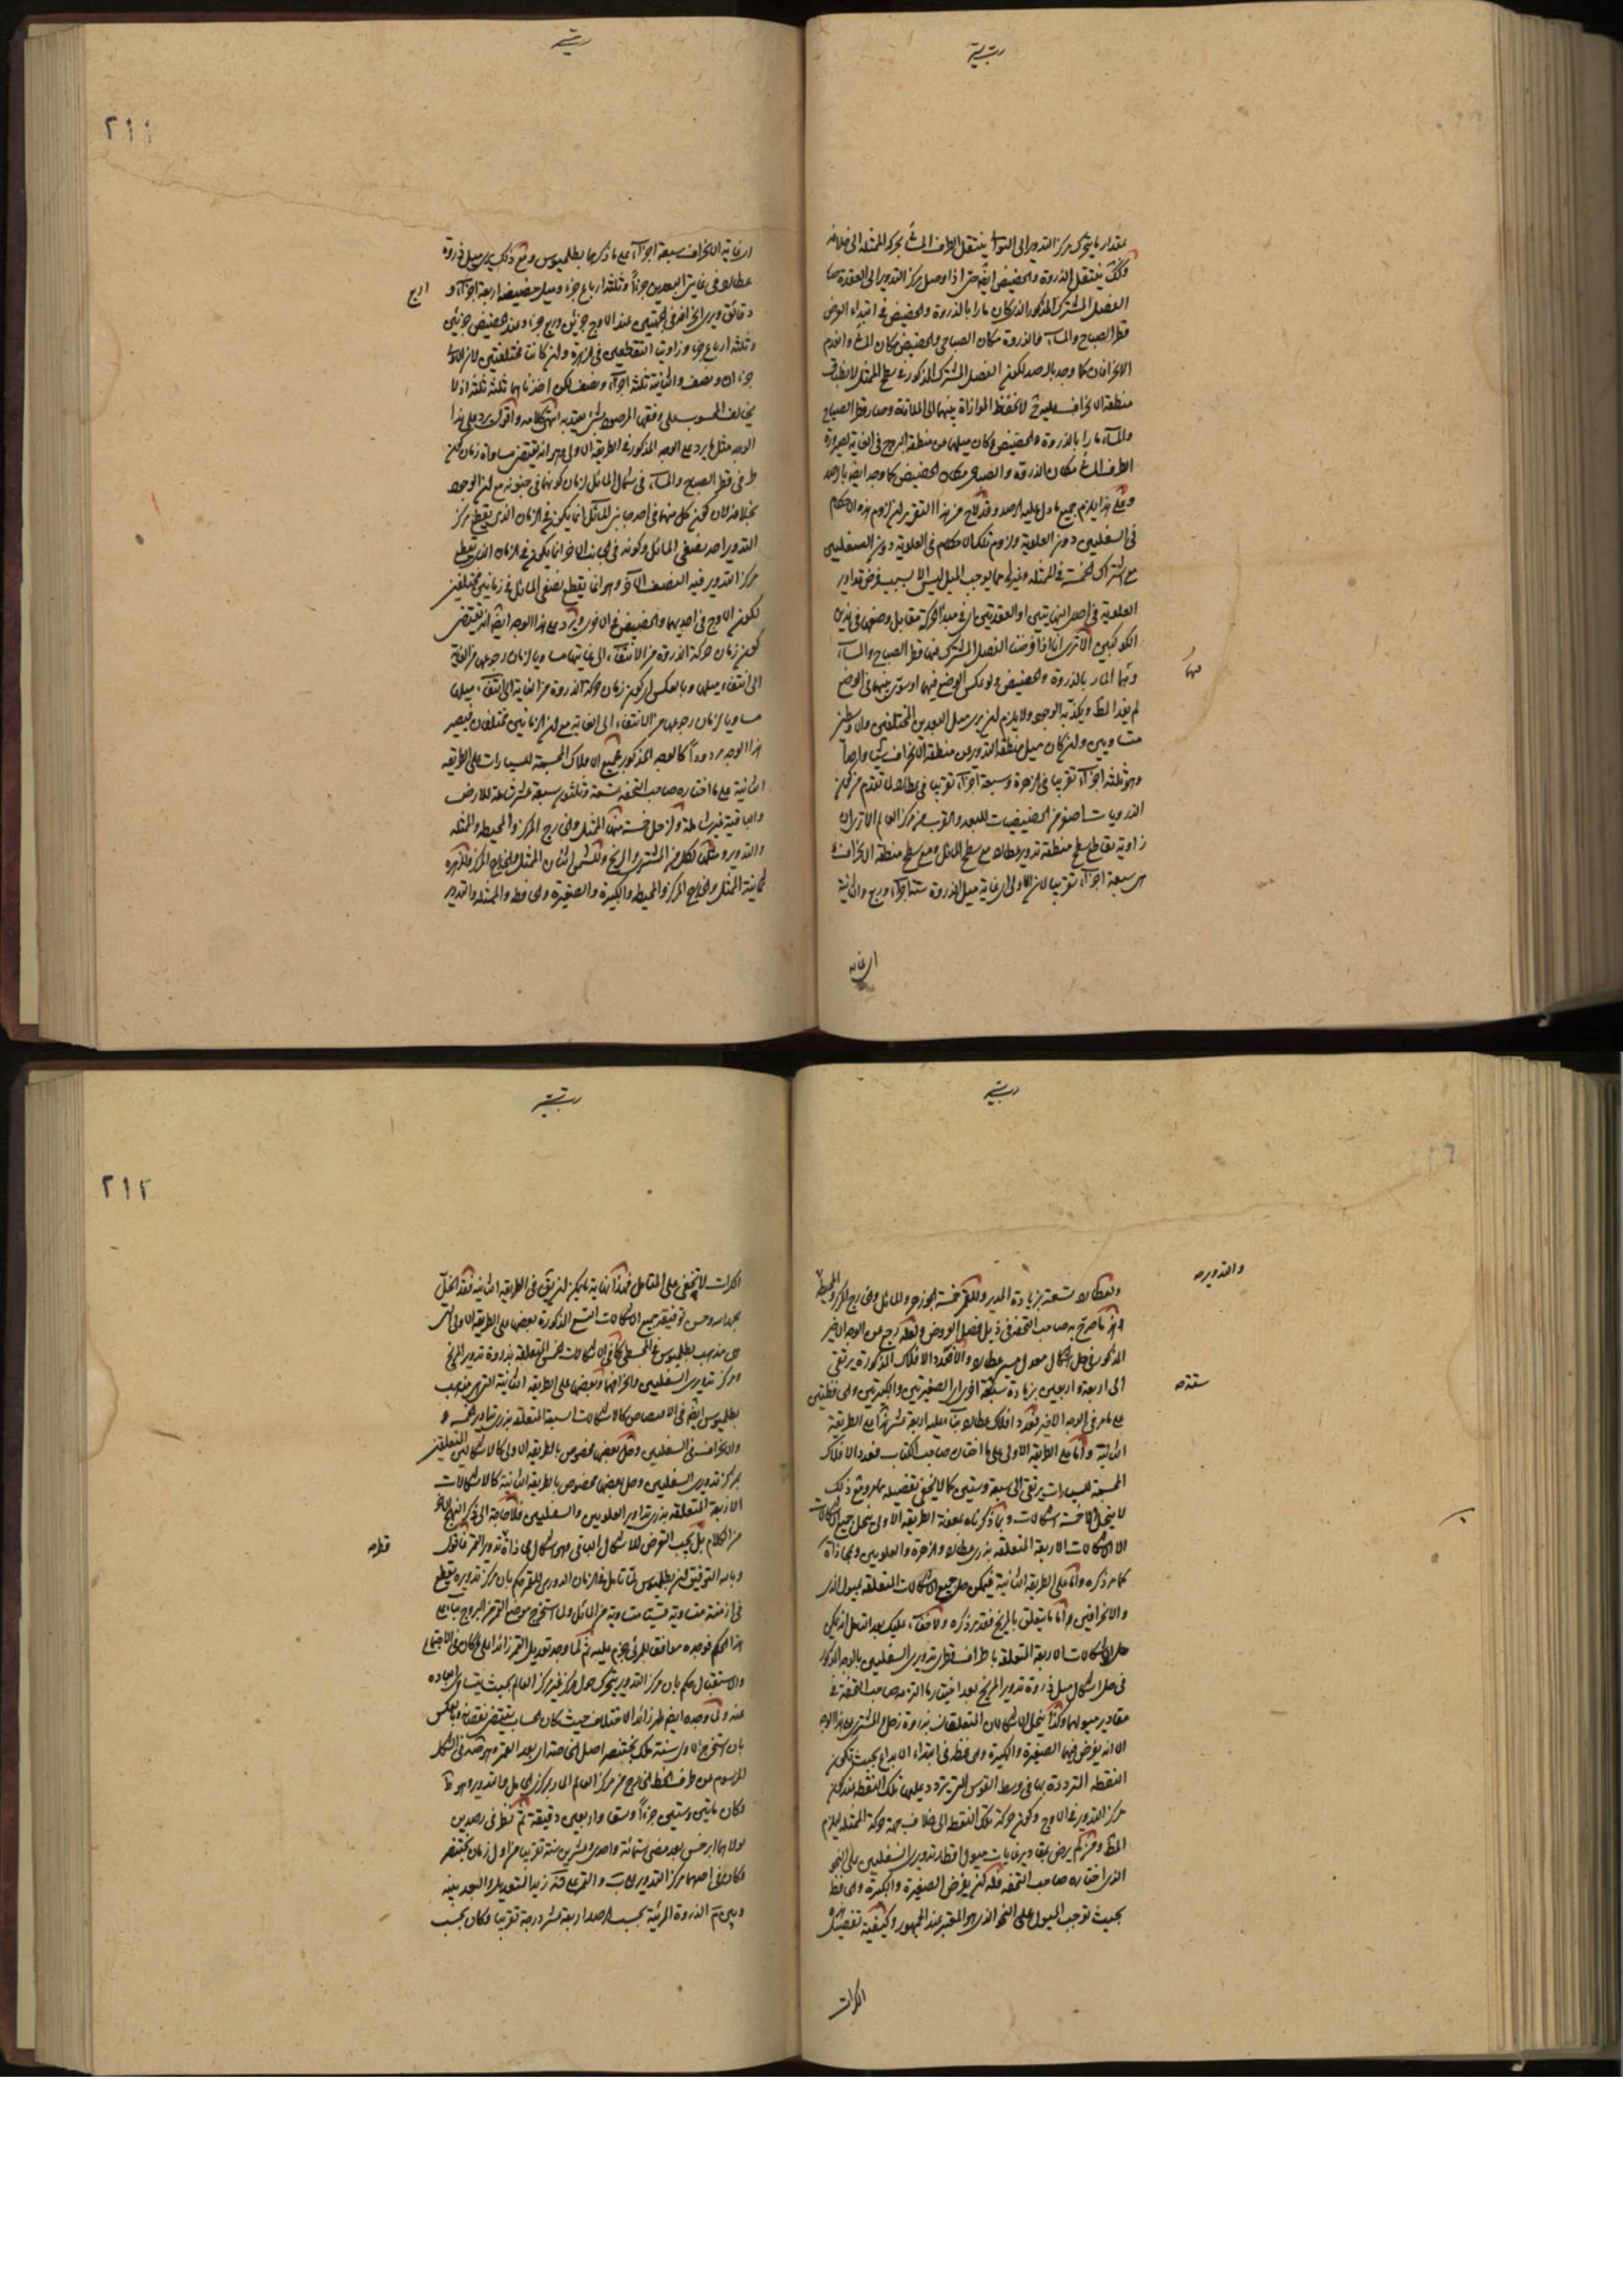 مقدار ما يتحرك مركز التدوير الى التوالى ينتقل الطرف المسائى بحركة الممثلة الى خلافه
فكك ينتقل الذروة والحضيض ايضا حتى اذا وصل مركز التدوير الى العقدة صار
الفصل المشترك المذكور الذى كان مارا بالذروة والحضيض فى ابتداء الوضع
قطر الصباح والمساء فالذروة مكان الصباحى والحضيض مكان المسائى وانعدم
الانحرافان كما وجد بالرصد لكون الفصل المشترك المذكور فى سطح الممثل لانطباق
منطقة الانحراف عليه ثم لا تحفظ الموازاة بينهما الى الملاقاة وصار قطر الصباح
والمساء مارا بالذروة والحضيض وكان ميلهما عن منطقة البروج فى الغاية لصيرورة
الطرف المسائى مكان الذروة والصباحى مكان الحضيض كما وجد ايضا بالرصد
وعلى هذا يلزم جميع ما دل عليه الرصد وقد لاح من هذا التقرير ان لزوم هذه الاحكام
فى السفليين دون العلوية ولزوم تلك الاحكام فى العلوية دون السفليين
مع اشتراك الخمسة فى الممثلة وغيرها مما يوجب الميل ليس الا بسبب فرض تداوير
العلوية فى احدى النهايتين او العقدتين فى مبدأ الحركة مقابل وضعها فى هذين
الكوكبين الا ترى انا اذا فرضنا الفصل المشترك فيهما قطر الصباح والمساء
وفيها المار بالذروة والحضيض ولو عكس الوضع فيهما او سوى بينهما فى الوضع
لم يفد المط ويكذبه الوجود ولا يلزم ان يرى ميل البعدين المختلفين والاوسطين
متساويين وان كان ميل منطقة التدوير عن منطقة الانحراف شيئا واحدا
وهو ثلثة اجزاء تقريبا فى الزهرة وسبعة اجزاء تقريبا فى عطارد لما تقدم من كون
الذرويات اصغر من الحضيضيات للبعد والقرب من مركز العالم الا ترى ان
زاوية تقاطع سطح منطقة تدوير عطارد مع سطح المائل ومع سطح منطقة الانحراف
هى سبعة اجزاء تقريبا لان الاولى اى غاية ميل الذروة ستة اجزاء وربع والثانية
اى غاية
٢١١
اى غاية الانحراف سبعة اجزاء على ما ذكرها بطلميوس ومع ذلك يرى ميل ذروة
عطارد فى غايتى البعدين جزءا وثلثة ارباع جزء وميل حضيضه اربعة اجزاء و
دقائق ويرى انحرافه فى الجهتين عند الاوج جزئين وربع جزء وعند الحضيض جزئين
وثلثة ارباع جزء وزاويتا التقطعين فى الزهرة وان كانت مختلفتين لان الاولى
جزءان ونصف والثانية ثلثة اجزاء ونصف لكن اخذناهما ثلثة ثلثة اذ لا
يخالف المحسوب على وفقهما المرصود بشئ يعتد به انتهى كلامه واقول يرد على هذا
الوجه مثل ما يرد على الوجه المذكور فى الطريقة الاولى وهو انه يقتضى مساواة زمان كون
طرفى قطر الصباح والمساء فى شمال المائل لزمان كونهما فى جنوبه مع ان الوجود
بخلافه لان كون كل منهما فى احد جانبى المائل انما يكون فى الزمان الذى يقطع مركز
التدوير احد نصفى المائل وكونه فى الجانب الاخر انما يكون فى الزمان الذى يقطع
مركز التدوير فيه النصف الاخر وهو انما يقطع نصفى المائل فى زمانين مختلفين
لكون الاوج فى احدهما والحضيض فى الاخر ويرد على هذا الوجه ايضا انه يقتضى
كون زمان حركة الذروة من الانتفاء الى غايتها مساويا لزمان رجوعها من الغاية
الى انتفاء ميلها وبالعكس اى كون زمان حركة الذروة من الغاية الى انتفاء ميلها
مساويا لزمان رجوعها من الانتفاء الى الغاية مع ان الزمانين مختلفان فيصير
هذا الوجه مردودا كالوجه المذكور فجميع الافلاك المجسمة للسيارات على الطريقة
الثانية على ما اختاره صاحب التحفة تسعة وثلثون سبعة عشر شاملة للارض
والباقية غير شاملة ولزحل خمسة منها الممثل والخارج المركز والمحيطة والممثلة
والتدوير ومثلها لكل من المشترى والمريخ وللشمس اثنان الممثل والخارج المركز وللزهرة
ثمانية الممثل والخارج المركز والمحيطة والكبيرة والصغيرة والحافظة والممثلة والتدوير
ولعطارد تسعة بزيادة المدير وللقمر خمسة الجوزهر والمائل والخارج المركز والمحيطة
والتدوير صح
وهذا ما صرح به صاحب التحفة فى ذيل فصل العروض ولعله رجع عن الوجه الاخير
المذكور فى حل اشكال معدل مسير عطارد والا فعدد الافلاك المذكورة يرتقى
الى اربعة واربعين بزيادة ستة اخرى الصغيرتين والكبيرتين والحافظتين
ستة صح
على ما مر فى الوجه الاخير فعدد افلاك عطارد بناء عليه اربعة عشر هذا على الطريقة
الثانية واما على الطريقة الاولى على ما اختاره صاحب الكتاب فعدد الافلاك
المجسمة للسيارات يرتقى الى سبعة وستين كما لا يخفى تفصيله مما مر ومع ذلك
لا ينحل الا خمسة اشكالات وبما ذكرناه بمعونة الطريقة الاولى ينحل جميع الاشكالات
الا الاشكالات الاربعة المتعلقة بذرى عطارد والزهرة والعلويين ومحاذاة
كما مر ذكره واما على الطريقة الثانية فيمكن حل جميع الاشكالات المتعلقة بميول الذرى
والانحرافين واما ما يتعلق بالمريخ فقد مر ذكره ولا خفاء عليك بعد التأمل انه يمكن
حل الاشكالات الاربعة المتعلقة باطراف قطرى تدويرى السفليين بالوجه المذكور
فى حل اشكال ميل ذروة تدوير المريخ بعد اعتبار ما التزمه صاحب التحفة فى
مقادير ميولها وكذا ينحل الاشكالان المتعلقان بذروة زحل والمشترى بهذا الوجه
الا انه يفرض فيهما الصغيرة والكبيرة والحافظة فى ابتداء الابداع بحيث تكون
النقطة المترددة بها فى وسط القوس التى يتردد عليها تلك النقطة عند كون
مركز التدوير فى الاوج وكون حركة تلك النقطة الى خلاف جهة حركة الممثلة ليلزم
المط ومن لم يرض بمقادير غايات ميول اقطار تدويرى السفليين على النحو
الذى اختاره صاحب التحفة فله ان يفرض الصغيرة والكبيرة والحافظة
بحيث توجب الميول على النحو الذى هو المعتبر عند الجمهور وكيفية تفصيل هذه
الكرات
٢١٢
الكرات لا تخفى على المتأمل فهذا غاية ما يمكن ان يقال فى الطريقة الثانية فقد انحل
بحمد الله وحسن توفيقه جميع الاشكالات التسع المذكورة بعضها على الطريقة الاولى التى
هى مذهب بطلميوس فى المجسطى كما فى الاشكالات الخمس المتعلقة بذروة تدوير المريخ
ومركز تدويرى السفليين وانحرافهما وبعضها على الطريقة الثانية التى هى مذهب
بطلميوس ايضا فى الاقتصاص كالاشكالات السبعة المتعلقة بذرى تداوير الخمسة
والانحراف فى السفليين وحل بعض مخصوص بالطريقة الاولى كالاشكالين المتعلقين
بمركز تدويرى السفليين وحل بعضها مخصوص بالطريقة الثانية كالاشكالات
الاربعة المتعلقة بذرى تداوير العلويين والسفليين فلا حاجة الى ذكر النهج الاخر
من الكلام بل يجب التعرض للاشكال الباقى وهو اشكال محاذاة قطر تدوير القمر فاقول
وبالله التوفيق ان بطلميوس لما تأمل فى الزمان الدورى للقمر حكم بان مركز تدويره يقطع
فى ازمنة متساوية قسيا متساوية من المائل ولما استخرج موضع القمر من البروج بناء على
هذا الحكم فوجده موافقا للمرئى جزم عليه ثم لما وجد تعديل القمر زائدا على ما كان فى الاجتماع
والاستقبال حكم بان مركز التدوير يتحرك حول مركز غير مركز العالم بحيث يتساوى ابعاده
عنه ولما وجده ايضا ظهر زائد الاختلاف حيث كان الحساب يقتضى نقصانه وبالعكس
بان استخرج الاوسط سنة ملك بختنصر اصل الخاصة اى بعد القمر وهو قده فى الشكل
المرسوم عن طرف الخط الخارج من مركز العالم المار بمركزى الحامل والتدوير وهو ط
وكان مأتين وستين جزءا وستا واربعين دقيقة ثم نظر فى رصدين
تولاهما ابرخس بعد مضى ستمائة واحدى وعشرين سنة تقريبا من اول زمان بختنصر
وكان فى احدهما مركز التدوير على ب والقمر على ق زائد التعديل والبعد بينه
وبين ى الذروة المرئية بحسب الرصد اربعة عشر درجة تقريبا وكان بحسب